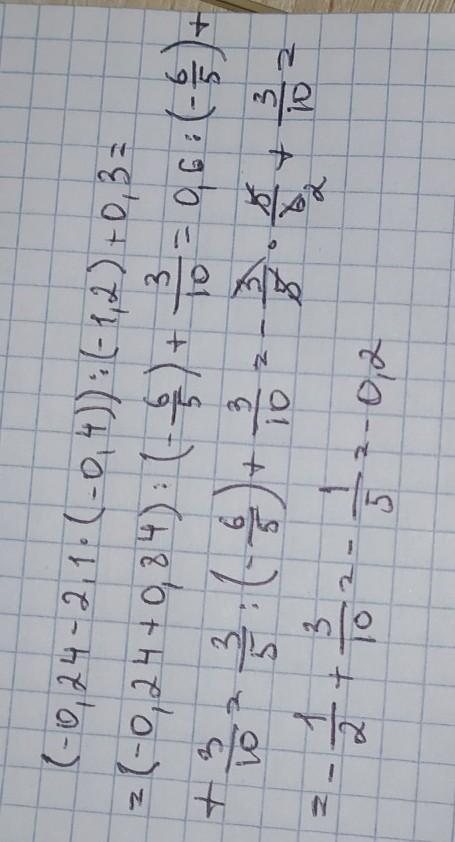 (-0,24-2,1·(-0,4)):(-1,2)+0,3=
=(-0,24+0,84):(-6/5)+3/10=0,6:(-6/5)+
+3/10=3/5:(-6/5)+3/10=-3/5·5/6 2+3/10=
=-1/2+3/10=-1/5=-0,2